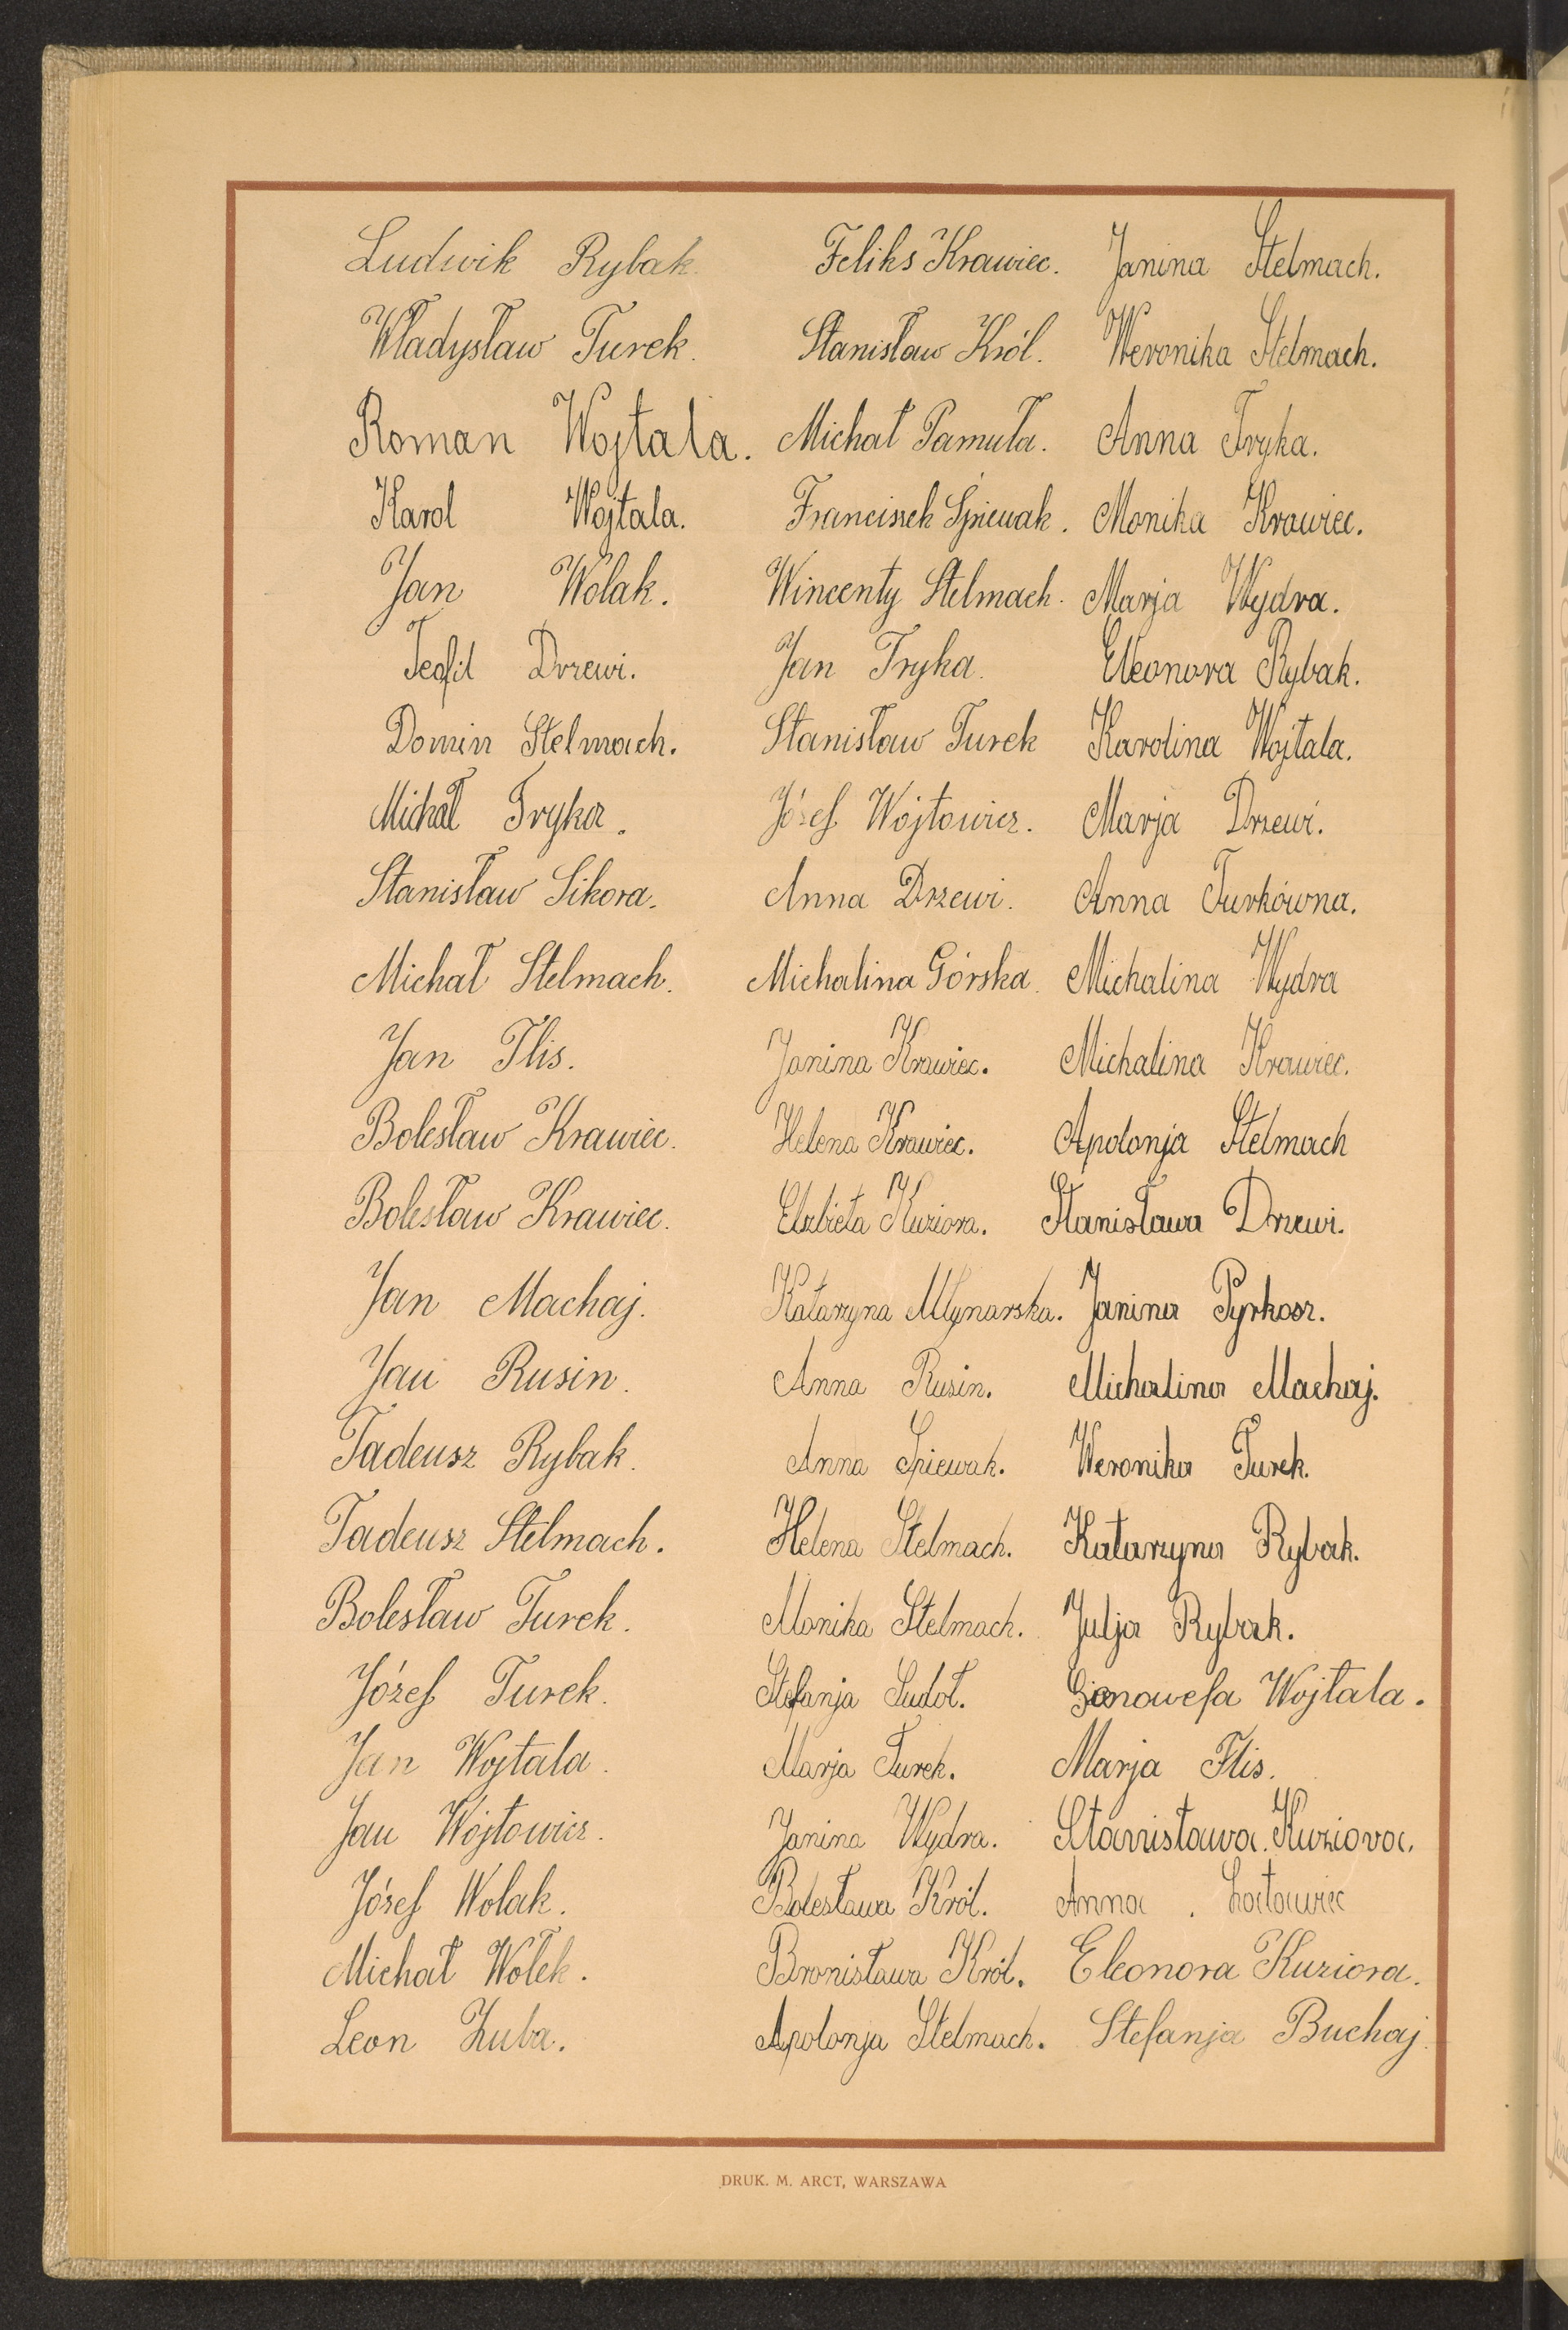 Ludwik Rybak
Władysław Turek.
Roman Wojtala.
Karol Wojtala.
Jan Wolak.
Teofil Drzewi.
Domin Stelmach.
Michał Tryka.
Stanisław Sikora.
Michał Stelmach.
Jan Flis.
Bolesław Krawiec.
Bolesław Krawiec.
Jan Machaj.
Jan Rusin.
Tadeusz Rybak.
Tadeusz Stelmach.
Bolesław Turek.
Józef Turek.
Jan Wojtala.
Jan Wójtowicz.
Józef Wolak.
Michał Wołek.
Leon Zuba.
Feliks Krawiec.
Stanisław Król.
Michał Pamuła.
Franciszek Śpiewak.
Wincenty Stelmach.
Jan Tryka.
Stanisław Turek
Józef Wójtowicz.
Anna Drzewi.
Michalina Górska.
Janina Krawiec.
Helena Krawiec.
Elżbieta Kuziora.
Katarzyna Młynarska.
Anna Rusin.
Anna Śpiewak.
Helena Stelmach.
Monika Stelmach.
Stefanja Sudoł.
Marja Turek.
Janina Wydra.
Bolesława Król.
Bronisława Król.
Apolonja Stelmach.
Janina Stelmach.
Weronika Stelmach.
Anna Tryka.
Monika Krawiec.
Marja Wydra.
Eleonora Rybak.
Karolina Wojtala.
Marja Drzewi.
Anna Turkówna.
Michalina Wydra
Michalina Krawiec.
Apolonja Stelmach
Stanisława Drzewi.
Janina Pyrkosz.
Michalina Machaj.
Weronika Turek.
Katarzyna Rybak.
Julja Rybak.
Genowefa Wojtala.
Marja Flis.
Stanisława Kuziora.
Anna
Eleonora Kuziora.
Stefanja Buchaj.
DRUK. M. ARCT, WARSZAWA